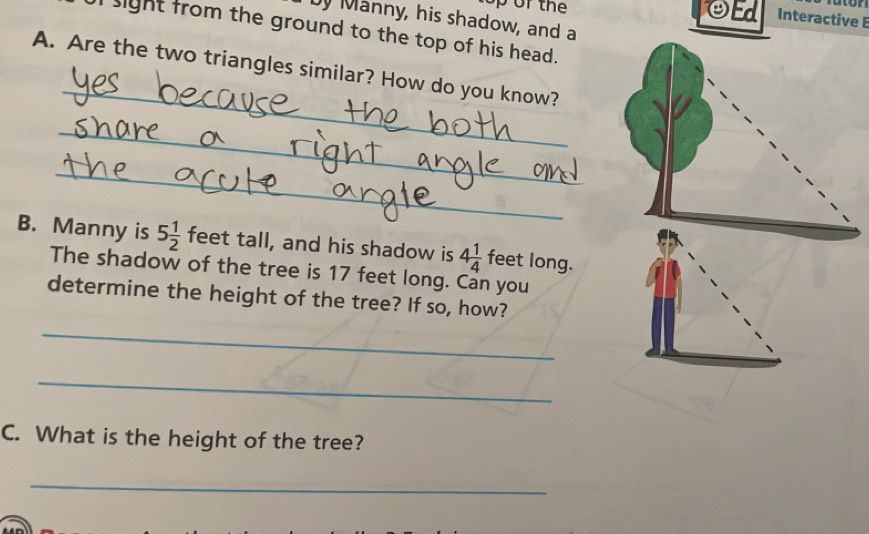 top of the
by Manny, his shadow, and a
sight from the ground to the top of his head.
Ed Interactive
A. Are the two triangles similar? How do you know?
yes because the both
share a right angle and
the acute angle
B. Manny is 5 1/2 feet tall, and his shadow is 4 1/4 feet long.
The shadow of the tree is 17 feet long. Can you
determine the height of the tree? If so, how?
C. What is the height of the tree?